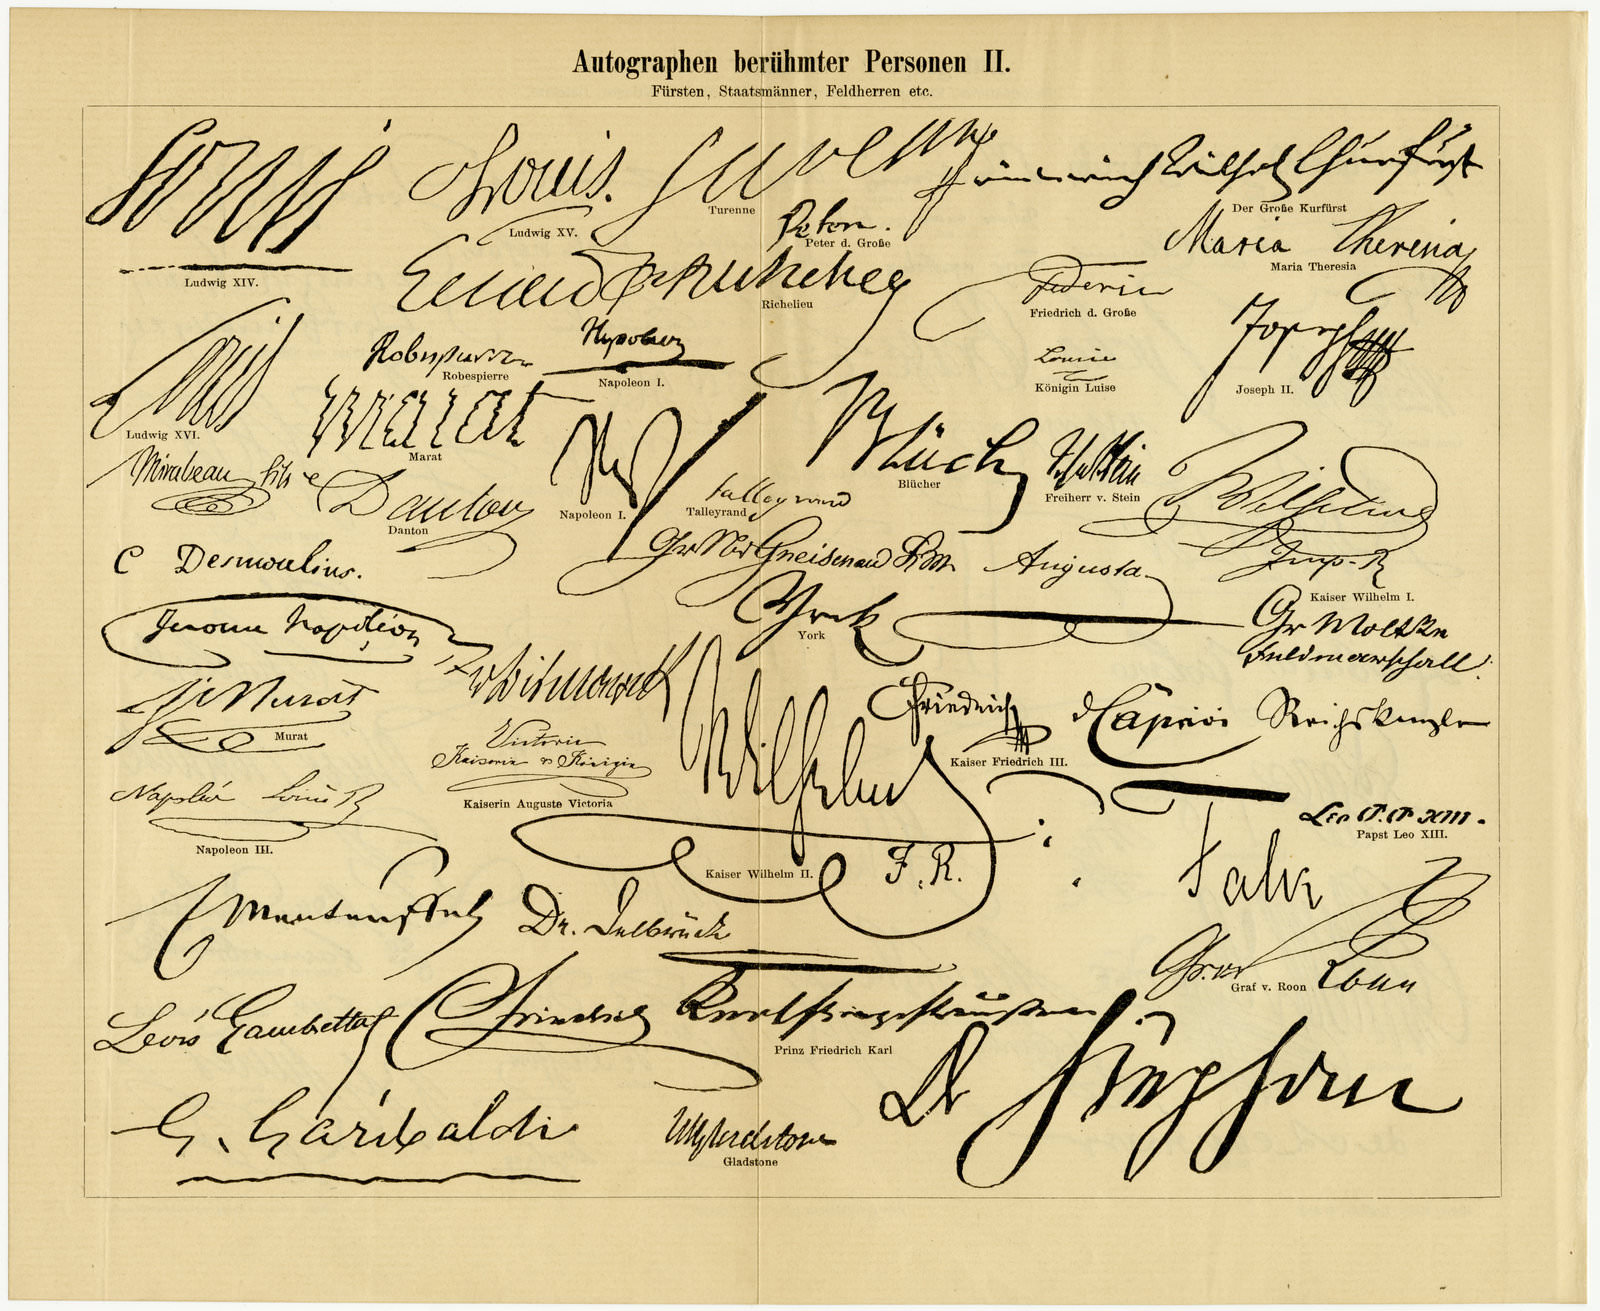 Autographen berühmter Personen II.
Fürsten, Staatsmänner, Feldherren etc.
Louis
Ludwig XIV.
Louis.
Ludwig XV.
Turenne
Churfürst
Der Große Kurfürst
Peter d. Große
Maria Theresia
Maria Theresia
Richelieu
Federic
Friedrich d. Große
Louis
Ludwig XVI.
Robespierre
Robespierre
Napoleon I.
Louise
Königin Luise
Joseph
Joseph II.
marat
Marat
Mirabeau fils
Danton
Danton
Napoleon I.
talleyrand
Talleyrand
Blücher
Blücher
Freiherr v. Stein
Wilhelm
Imp. R
Kaiser Wilhelm I.
C Desmoulins.
Gneisenau
Augusta
York
York
Jerome Napoléon
Gr Moltke
Feldmarschall
v Bismarck
Murat
Murat
Victoria
Kaiserin u Königin
Kaiserin Auguste Victoria
Wilhelm
F. R.
Kaiser Wilhelm II.
Friedrich
Kaiser Friedrich III.
Caprivi Reichskanzler
Napoléon Louis B
Napoleon III.
Leo P.P. XIII.
Papst Leo XIII.
Falk
Manteuffel
Dr. Delbrück
Graf v. Roon
Roon
Léon Gambetta
Friedrich Karl
Prinz Friedrich Karl
Dr Stephan
G. Garibaldi
WEGladstone
Gladstone